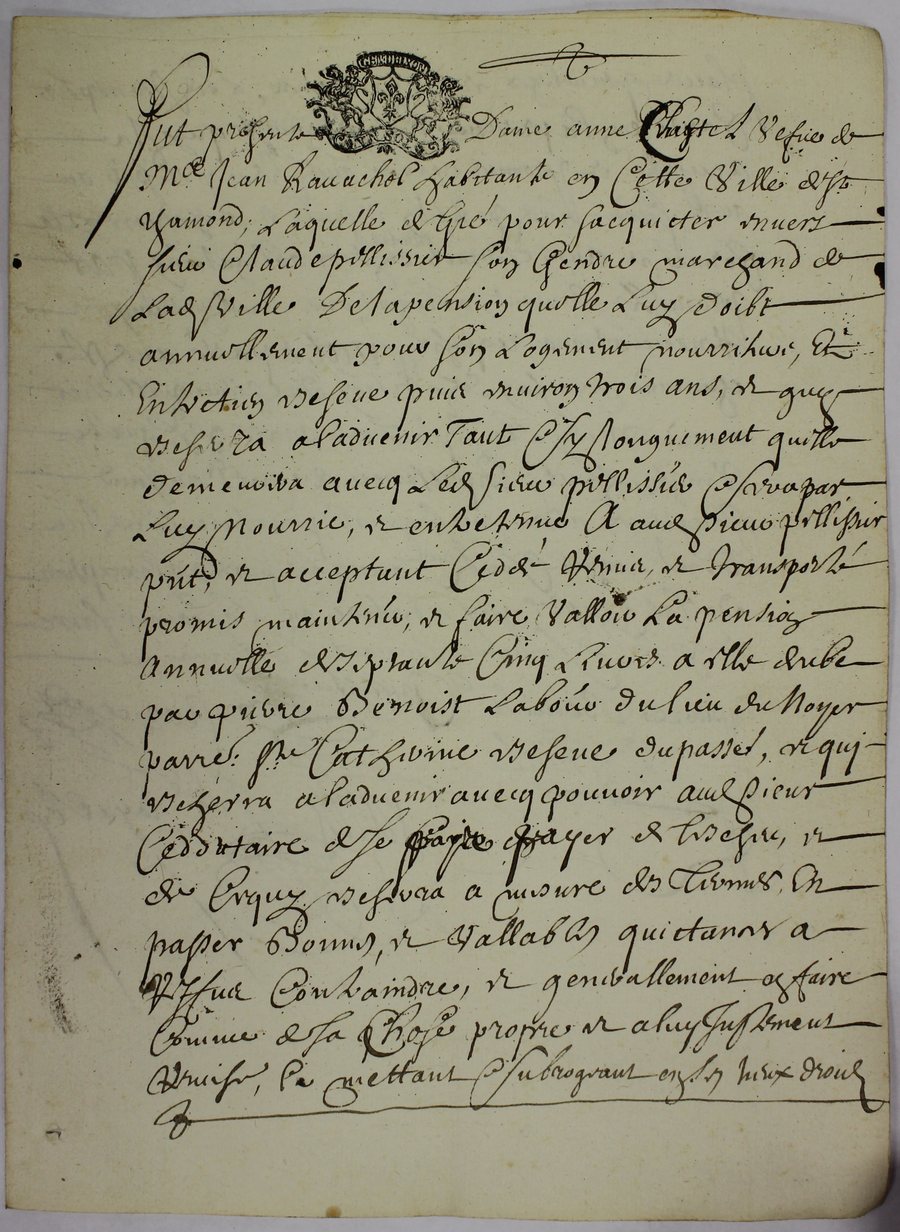 Fut presente Dame anne Chastel Vefue de
Mre Jean Rauachol habitante en Cette Ville de St
chamond, Laquelle de gré pour sacquicter enuers
sieur Claude pellissier son Gendre marchand de
Ladte Ville De la pension quelle Luy doibt
annuellement pour son Logement nourriture, Et
Entretien escheue puis enuiron trois ans, et quy
escherra a laduenir Tant Et sy longuement quelle
demeurera auecq Led sieur pellissier Et sera par
Luy Nourrie, et entretenue A aud sieur pellissier
pnt, et acceptant Ceddé Remis, et transporté
promis maintenir, et faire Valloir La pension
Annuelle de septante Cinq Liures a elle deube
par pierre Benoist Labour du lieu du Noyer
parre. Ste Catherine escheue du passé, et qui
escherra a laduenir auecq pouuoir aud sieur
Ceddataire de se faire payer de Lescheu, et
de Cequy escherra a mesure des Termes, En
passer Bonnes, et Vallables quictances a
Reffus Contraindre, et generallement en faire
Comme de sa Chose propre et a luy Justement
Remise, Le mettant Et subrogeant en ses lieux droicts